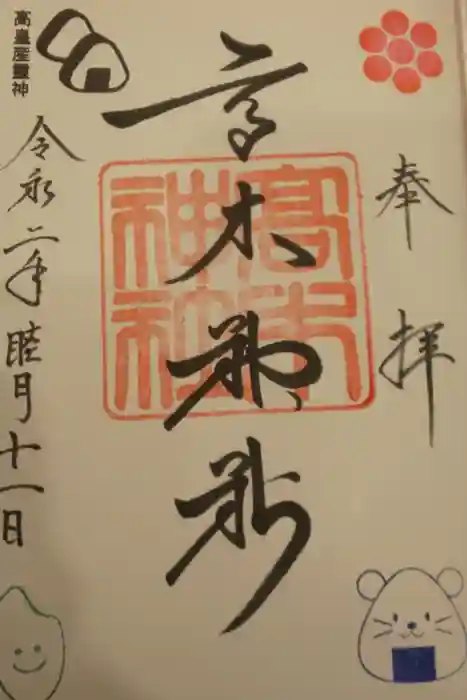 奉拝
高木神社
高木神社
令和二年睦月十一日
高皇産靈神